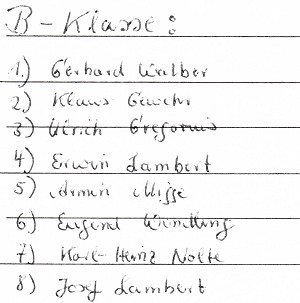 B - Klasse :
1.) Gerhard Walber
2.) Klaus Gewehr
3.) Ulrich Gregorius
4.) Erwin Lambert
5.) Armin
6.) Eugend
7.) Karl-Heinz Nolte
8.) Josef Lambert